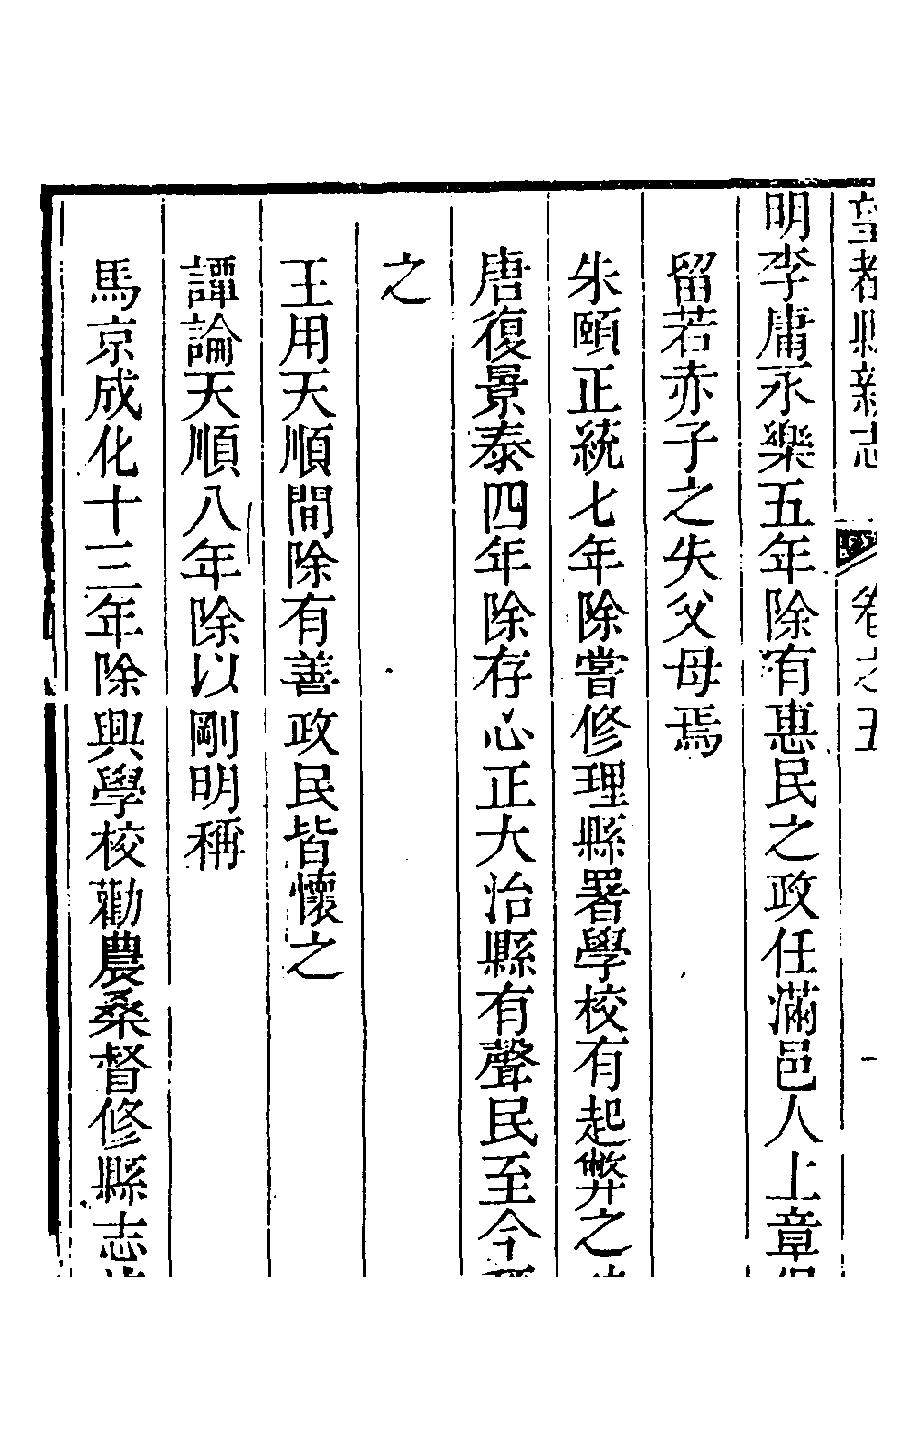 望都縣新志 卷之五 一
明李庸永樂五年除有惠民之政任滿邑人上章保
留若赤子之失父母焉
朱頤正統七年除嘗修理縣署學校有起弊之
唐復景泰四年除存心正大治縣有聲民至今稱
之
王用天順間除有善政民皆懷之
譚論天順八年除以剛明稱
馬京成化十三年除興學校勸農桑督修縣志